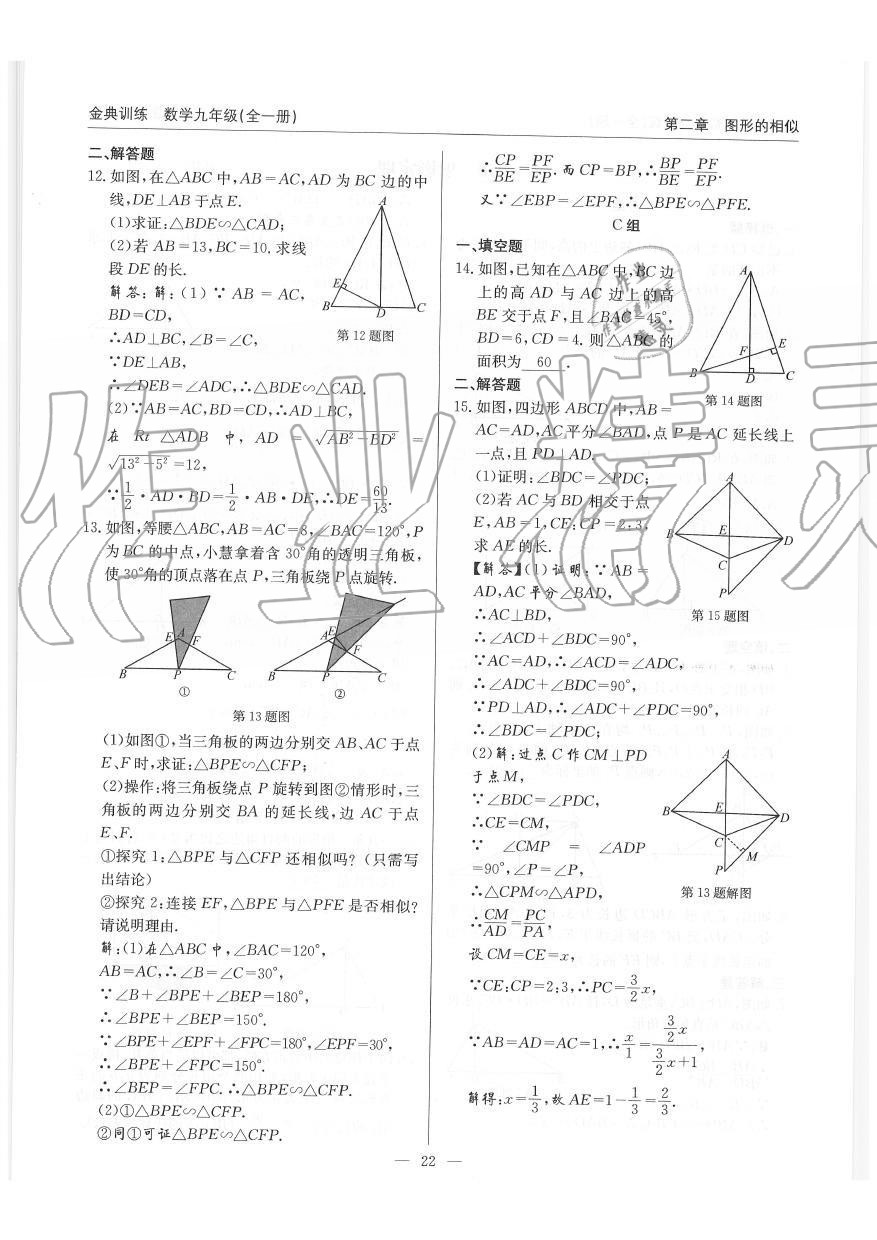 金典训练　数学九年级(全一册)
第二章　图形的相似
二、解答题
12. 如图,在△ABC 中,AB=AC,AD 为 BC 边的中
线,DE⊥AB 于点 E.
(1)求证:△BDE∽△CAD;
(2)若 AB=13,BC=10. 求线
段 DE 的长.
解答:解:(1)∵ AB = AC,
BD=CD,
∴AD⊥BC,∠B=∠C,
∵DE⊥AB,
∴∠DEB=∠ADC,∴△BDE∽△CAD.
(2)∵AB=AC,BD=CD,∴AD⊥BC,
在 Rt △ADB 中, AD = √(AB²-BD²) =
√(13²-5²)=12,
∵1/2·AD·BD=1/2·AB·DE,∴DE=60/13.
A
E
B
D
C
第 12 题图
13. 如图,等腰△ABC,AB=AC=8,∠BAC=120°,P
为 BC 的中点,小慧拿着含 30°角的透明三角板,
使 30°角的顶点落在点 P,三角板绕 P 点旋转.
E A F
B P C
①
A E
F
B P C
②
第 13 题图
(1)如图①,当三角板的两边分别交 AB、AC 于点
E、F 时,求证:△BPE∽△CFP;
(2)操作:将三角板绕点 P 旋转到图②情形时,三
角板的两边分别交 BA 的延长线,边 AC 于点
E、F.
①探究 1:△BPE 与△CFP 还相似吗?(只需写
出结论)
②探究 2:连接 EF,△BPE 与△PFE 是否相似?
请说明理由.
解:(1)在△ABC 中,∠BAC=120°,
AB=AC,∴∠B=∠C=30°,
∵∠B+∠BPE+∠BEP=180°,
∴∠BPE+∠BEP=150°.
∵∠BPE+∠EPF+∠FPC=180°,∠EPF=30°,
∴∠BPE+∠FPC=150°.
∴∠BEP=∠FPC.∴△BPE∽△CFP.
(2)①△BPE∽△CFP.
②同①可证△BPE∽△CFP.
∴CP/BE=PF/EP. 而 CP=BP,∴BP/BE=PF/EP.
又∵∠EBP=∠EPF,∴△BPE∽△PFE.
C 组
一、填空题
14. 如图,已知在△ABC 中,BC 边
上的高 AD 与 AC 边上的高
BE 交于点 F,且∠BAC=45°,
BD=6,CD=4. 则△ABC 的
面积为 60 .
A
F E
B D C
第 14 题图
二、解答题
15. 如图,四边形 ABCD 中,AB=
AC=AD,AC 平分∠BAD,点 P 是 AC 延长线上
一点,且 PD⊥AD.
(1)证明:∠BDC=∠PDC;
(2)若 AC 与 BD 相交于点
E,AB=1,CE:CP=2:3,
求 AE 的长.
【解答】(1)证明:∵AB=
AD,AC 平分∠BAD,
∴AC⊥BD,
∴∠ACD+∠BDC=90°,
∵AC=AD,∴∠ACD=∠ADC,
∴∠ADC+∠BDC=90°,
∵PD⊥AD,∴∠ADC+∠PDC=90°,
∴∠BDC=∠PDC;
A
B E D
C
P
第 15 题图
(2)解:过点 C 作 CM⊥PD
于点 M,
∵∠BDC=∠PDC,
∴CE=CM,
∵ ∠CMP = ∠ADP
=90°,∠P=∠P,
∴△CPM∽△APD,
∴CM/AD=PC/PA,
设 CM=CE=x,
∵CE:CP=2:3,∴PC=3/2x,
∵AB=AD=AC=1,∴x/1=(3/2x)/(3/2x+1),
解得:x=1/3,故 AE=1-1/3=2/3.
A
B E D
C
M
P
第 13 题解图
— 22 —
作业精灵